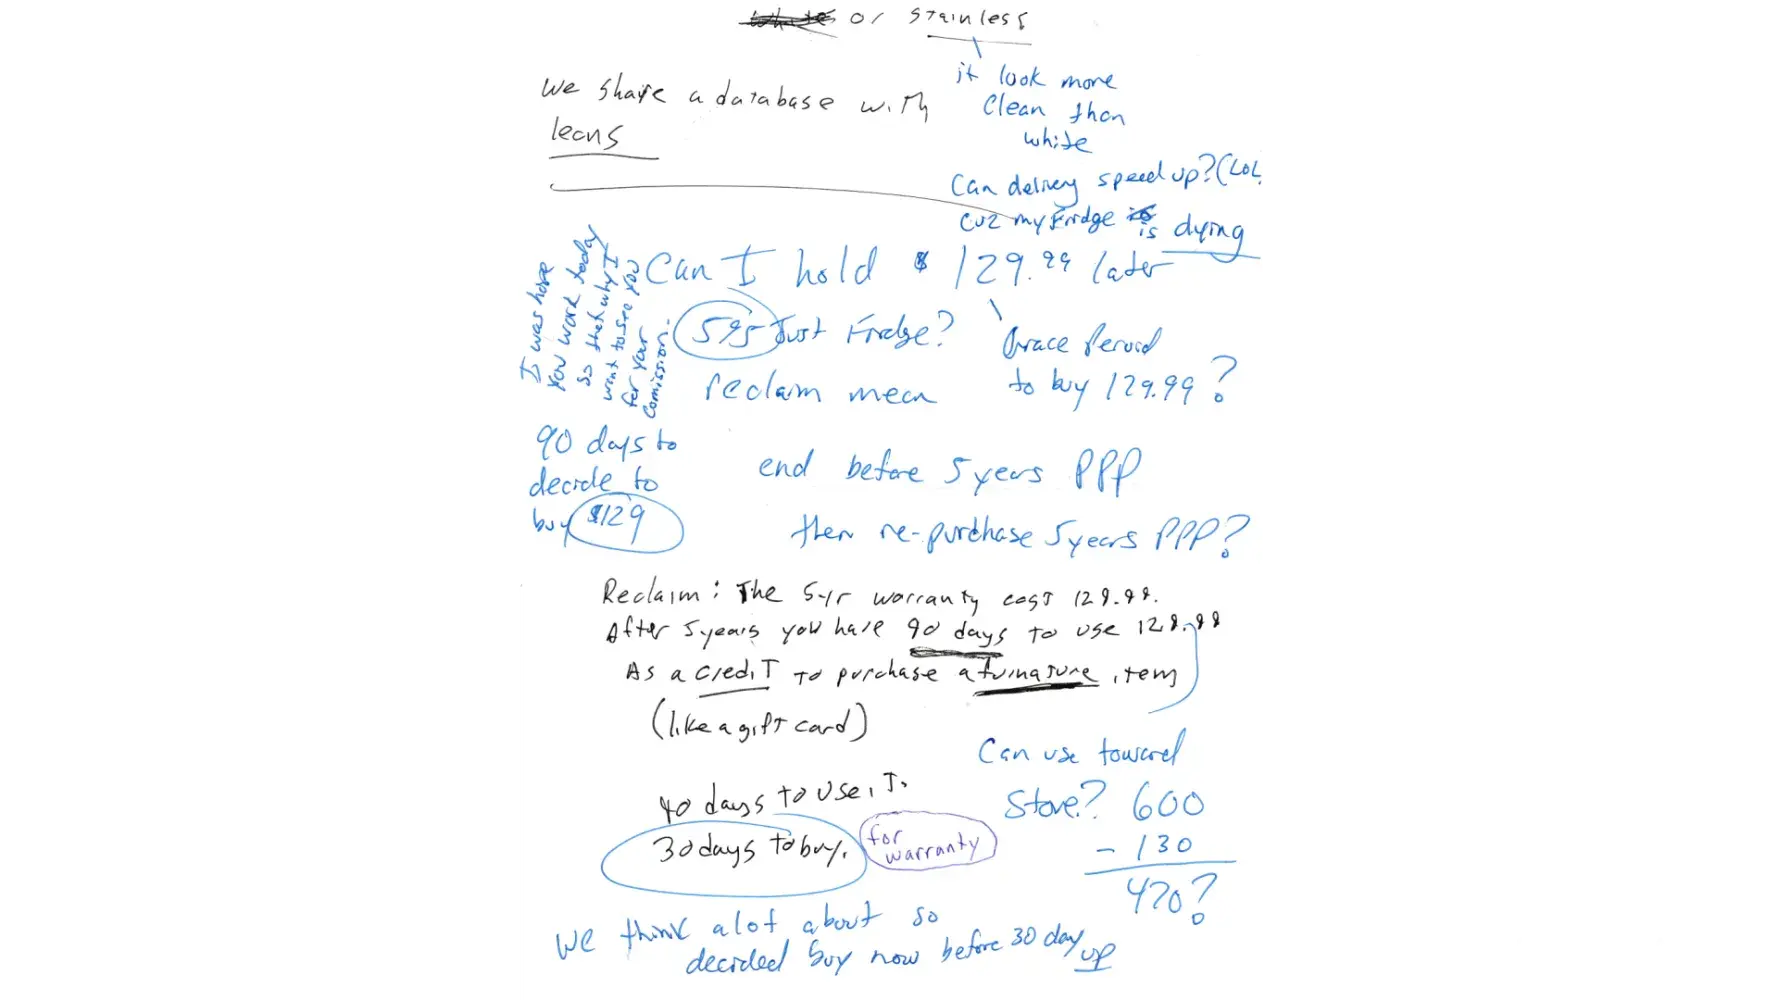 or Stainless
it look more
Clean than
white
We share a database with
leons
Can delivery speed up? (LOL
cuz my Fridge is dying
Can I hold $129.99 later
I was hope
you work today
so that why I
want to see you
for your
Comission.
595 Just Fridge?
Grace Period
to buy 129.99?
reclaim mean
90 days to
decide to
buy $129
end before 5 years PPP
then re-purchase 5 years PPP?
Reclaim: The 5yr warranty cost 129.99.
After 5 years you have 90 days to use 129.99
As a credit to purchase a furnature item
(like a gift card)
Can use toward
Stove? 600
- 130
470?
90 days to use it.
30 days to buy.
for
warranty
We think alot about so
decided buy now before 30 day up